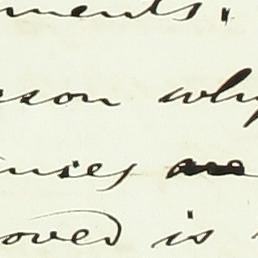 ments.
erson why
enses are
oved is